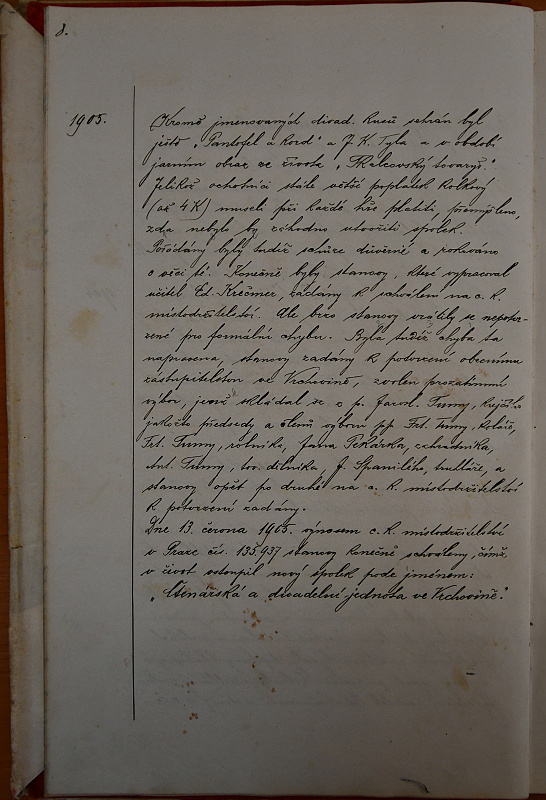 8.
1905.
Kromě jmenovaných divad. kusů sehrán byl
ještě „Pantofel a kord" a J. K. Tyla a v období
jarním obraz ze života „Malcovský tovaryš."
Jelikož ochotníci stále větší poplatek kolkový
(až 4 K) museli při každé hře platiti, přemýšleno,
zda nebylo by záhodno utvořiti spolek.
Pořádány byly tudíž schůze důvěrné a rokováno
o věci té. Konečně byly stanovy, které vypracoval
učitel Ed. Krečmer, zadány k schválení na c. k.
místodržitelství. Ale brzo stanovy vrátily se nepotvr-
zené pro formální chybu. Byla tudíž chyba ta
napravena, stanovy zadány k potvrzení obecnímu
zastupitelstvu ve Vrchovině, zvolen prozatimní
výbor, jenž skládal se z p. Jarosl. Tumy,
jakožto předsedy a členů výboru pp. Frt. Tumy, koláře,
Frt. Tumy, rolníka, Jana Pekárka, zahradníka,
Ant. Tumy, tov. dělníka, J. Spanilého, truhláře, a
stanovy opět po druhé na c. k. místodržitelství
k potvrzení zadány.
Dne 13. června 1905. výnosem c. k. místodržitelství
v Praze čís. 135.937 stanovy konečně schváleny, čímž
v život vstoupil nový spolek pode jménem:
„Čtenářská a divadelní jednota ve Vrchovině."